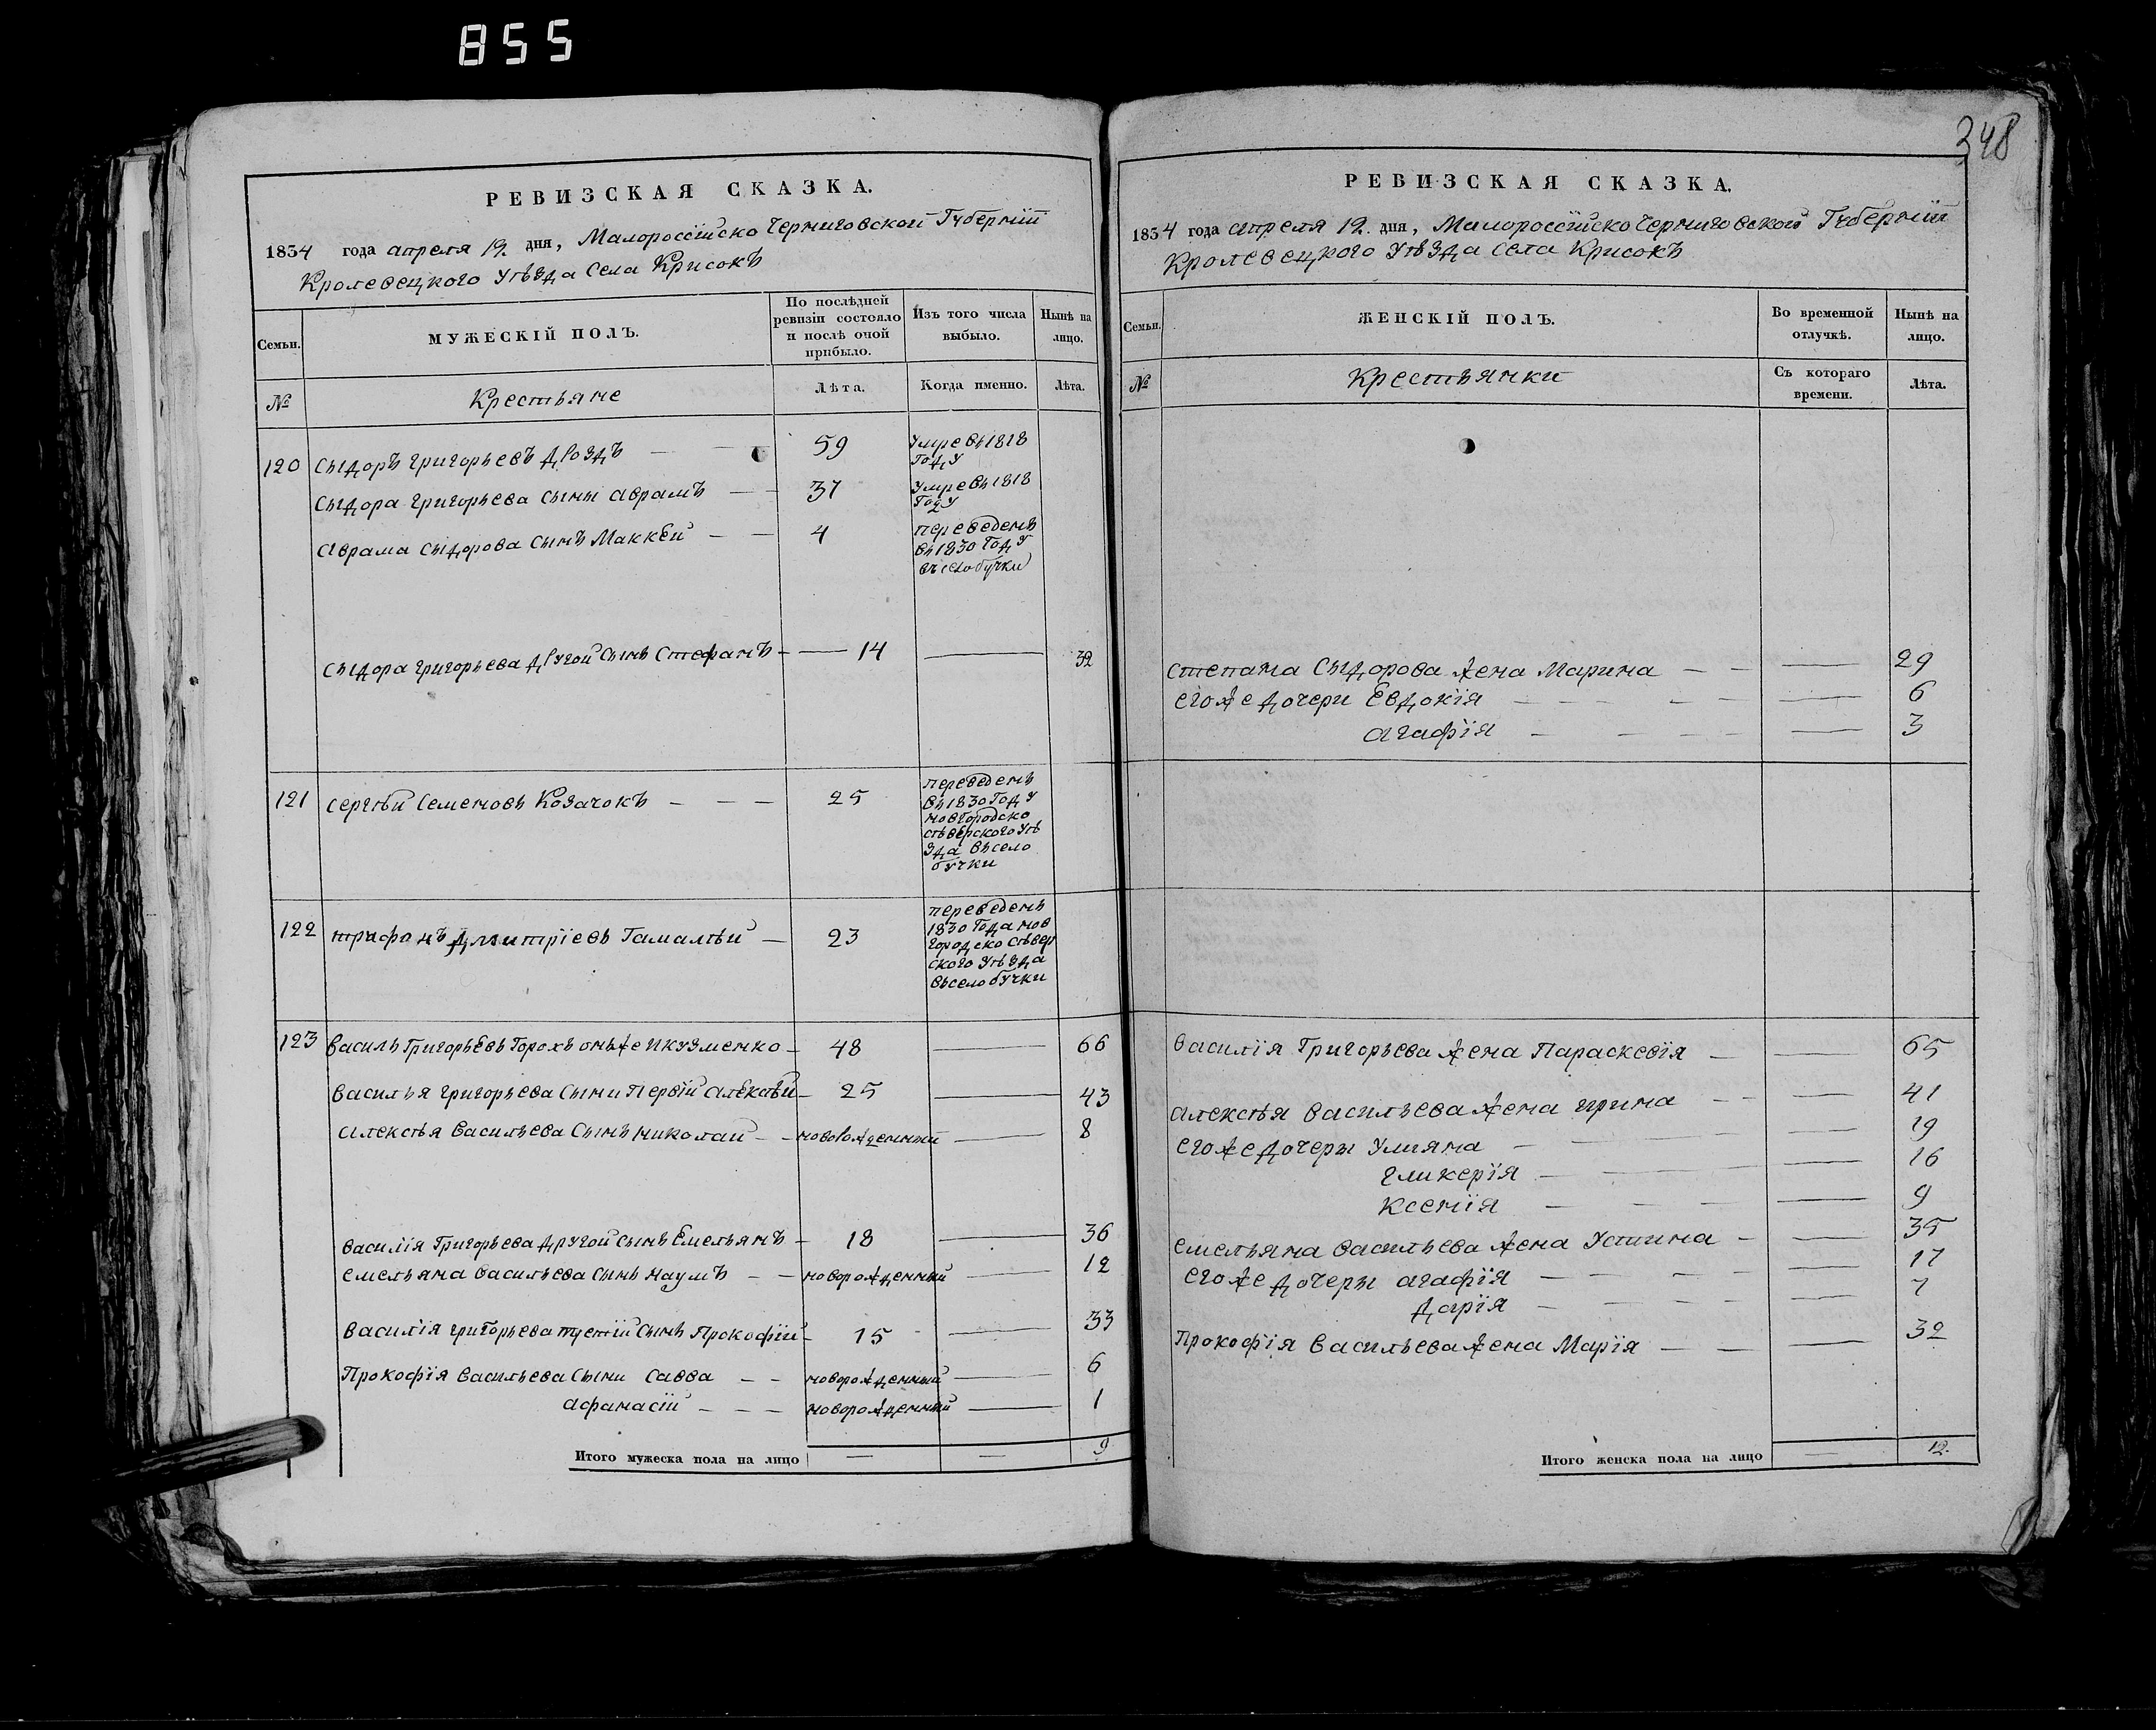 855
348
РЕВИЗСКАЯ СКАЗКА.
1834 года апреля 19. дня, Малороссійско Черниговской Губерніи
Кролевецкого Уѣзда Села Крисокъ
Семьи.
МУЖЕСКІЙ ПОЛЪ.
По послѣдней ревизіи состояло и послѣ оной прибыло.
Изъ того числа выбыло.
Нынѣ на лицо.
№
Крестьяне
Лѣта.
Когда именно.
Лѣта.
120 Сыдоръ григорьевъ Дроздъ — 59 Умре въ 1818
Году
Сыдора григорьева сыны аврамъ — 37 Умре въ 1818
Году
Аврама сыдорова сынъ Маккей — 4 переведенъ
въ 1830 Году
въ село бучки
Сыдора григорьева другой сынъ Стефанъ — 14 — 32
121 сергѣй Семеновъ Козачокъ — 25 переведенъ
въ 1830 Году
новгородско
сѣверского уѣ
зда въ село
бучки
122 трифонъ Дмитріевъ Гамалѣй — 23 переведенъ
1830 Года нов
городско сѣвер
ского уѣзда
въ село бучки
123 василь Григорьевъ Горохъ онъже и кузменко — 48 — 66
василья григорьева сыны Первій алексѣй — 25 — 43
алексѣя васильева сынъ николай — новорожденный — 8
василія Григорьева другой сынъ Емельянъ — 18 — 36
емельяна васильева сынъ наумъ — новорожденный — 12
василія григорьева третій сынъ Прокофій — 15 — 33
Прокофія васильева сыны савва — новорожденный — 6
афанасій — новорожденный — 1
Итого мужеска пола на лицо — — 9
РЕВИЗСКАЯ СКАЗКА.
1834 года апреля 19. дня, Малороссійско Черниговской Губерніи
Кролевецкого Уѣзда Села Крисокъ
Семьи.
ЖЕНСКІЙ ПОЛЪ.
Во временной отлучкѣ.
Нынѣ на лицо.
№
Крестьянки
Съ котораго времени.
Лѣта.
степана Сыдорова жена Марина — 29
егоже дочери Евдокія — 6
агафія — 3
василія Григорьева жена Параскевія — 65
алексѣя васильева жена ирина — 41
егоже дочеры Улияна — 19
гликерія — 16
ксенія — 9
емельяна васильева жена Устина — 35
егоже дочеры агафія — 17
дарія — 7
Прокофія васильева жена Марія — 32
Итого женска пола на лицо — 12.